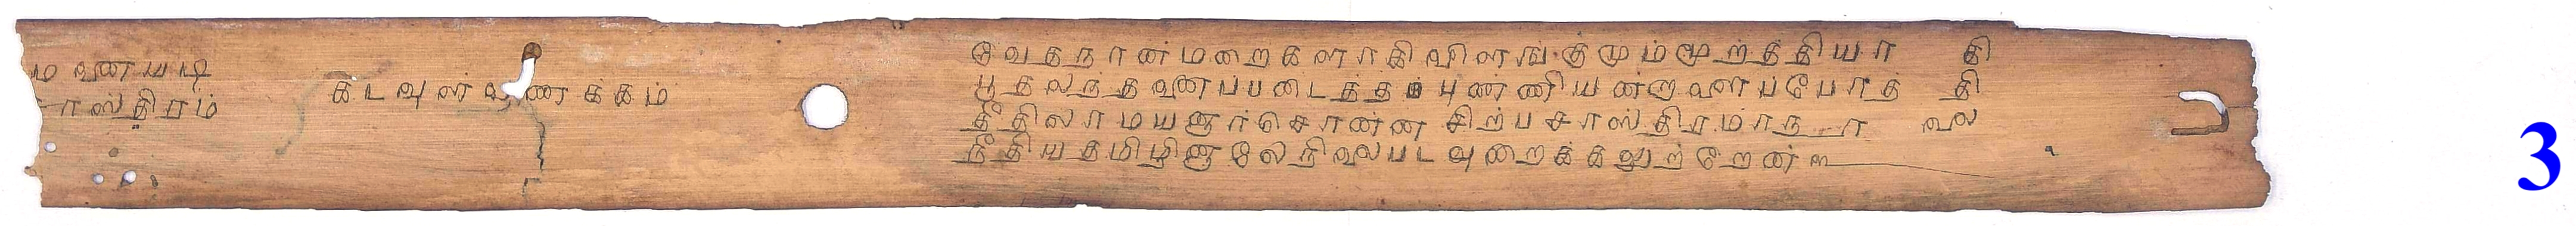 மணையடி
சாஸ்திரம்
கடவுள்வணக்கம்
வேதநான்மறைகளாகிவிளங்கு மும்மூற்த்தியாதி
பூதலந்தனைப்படைத்தபுண்ணியன்றனைப்போத்தி
தீதிலாமயனார்சொன்ன சிற்பசாஸ்திரமாநூலை
நீதியதமிழினாலேநிலைபடவுறைக்கலுற்றேன்
3